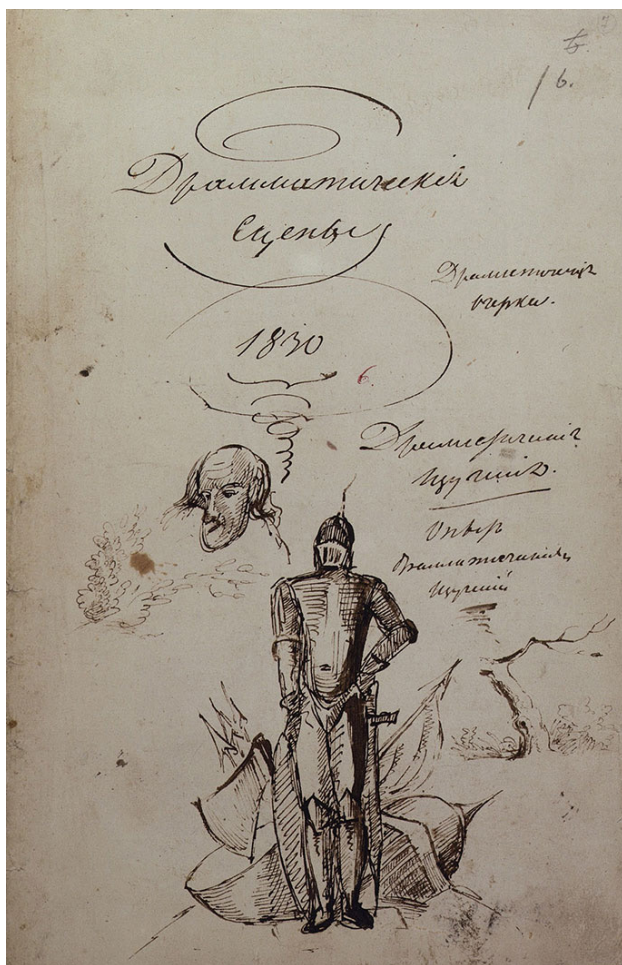 6.
Драмматическія
сцены
Драмматическіе
очерки.
1830
6.
Драмматическія
изученія.
Опытъ
драмматическихъ
изученій